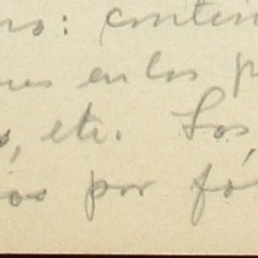 no: contin
es en los p
s, etc. Los
ios por fó